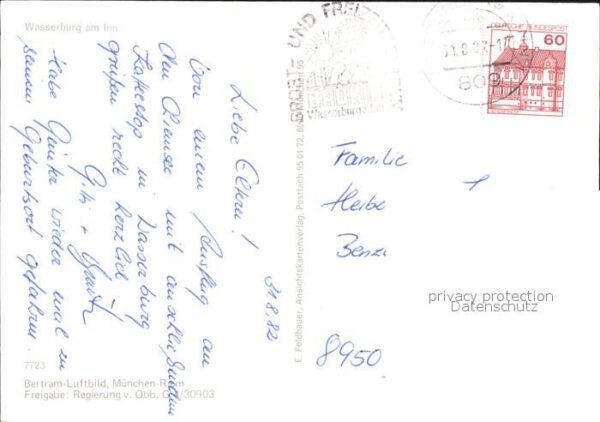 Wasserburg am Inn
31.8.82
Liebe Eltern!
Von einem Ausflug an
den Chiemsee mit anschließendem
Kaffeestop in Wasserburg
grüßen recht herzlich
Gitti +
Habe Günter wieder mal zu
seinem Geburtsort gefahren.
7723
Bertram-Luftbild, München-Riem
Freigabe: Regierung v. Obb. G 30903
E. Feldbauer, Ansichtskartenverlag, Postfach 95 01 72, 8000 München 95
SPORT- UND FREIZEIT
Wasserburg
31.8.82-17
809
DEUTSCHE BUNDESPOST
60
Familie
8950
privacy protection
Datenschutz